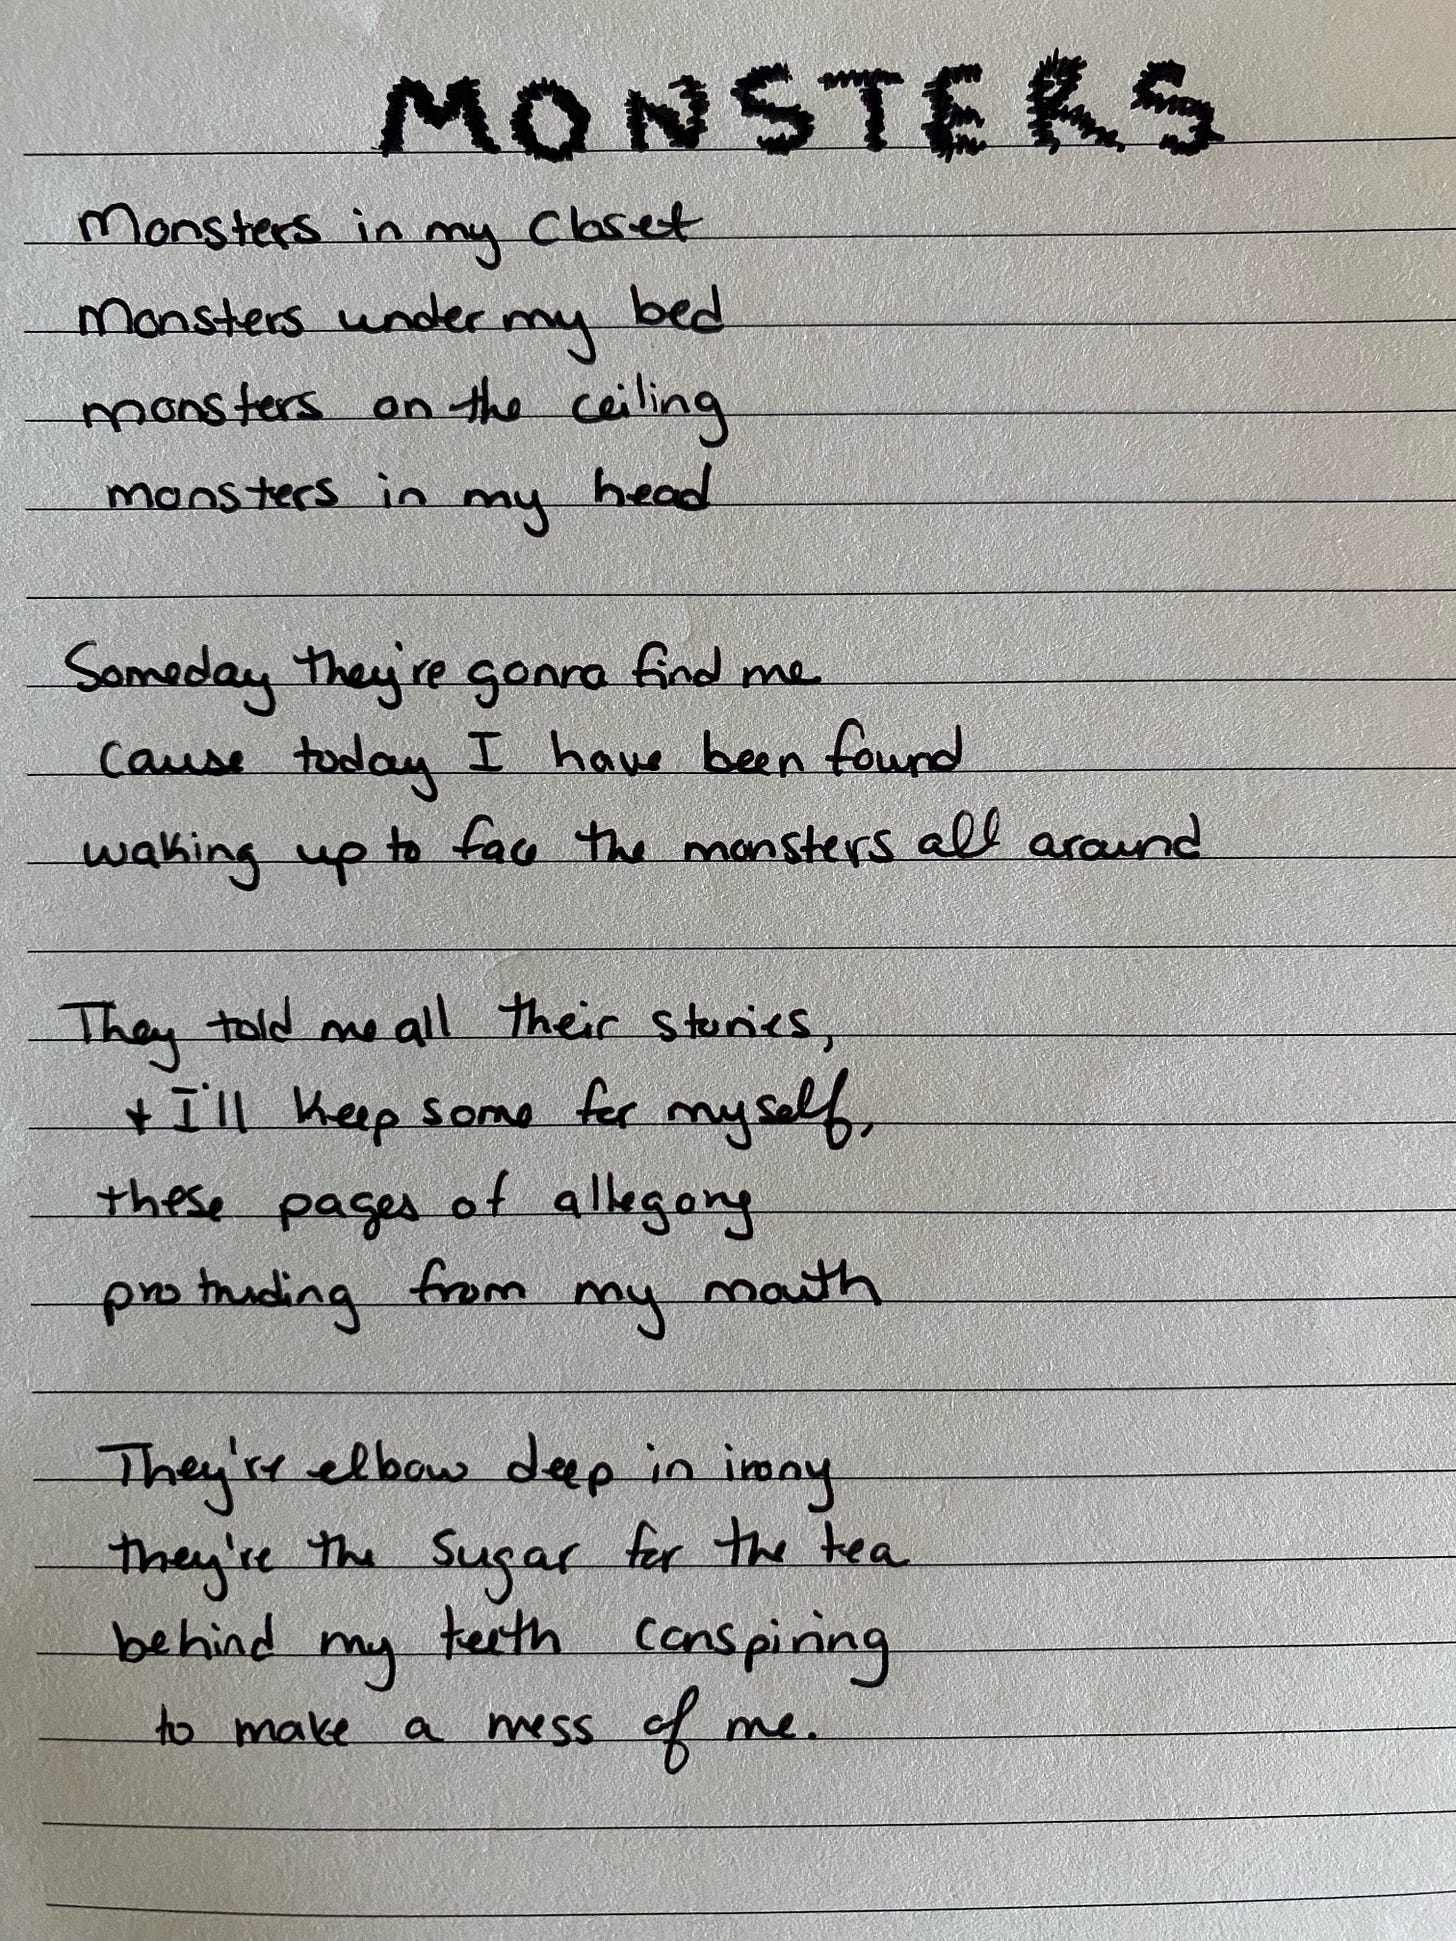 MONSTERS
Monsters in my closet
Monsters under my bed
monsters on the ceiling
monsters in my head
Someday they're gonna find me
cause today I have been found
waking up to face the monsters all around
They told me all their stories,
+ I'll keep some for myself,
these pages of allegory
protruding from my mouth
They're elbow deep in irony
they're the sugar for the tea
behind my teeth conspiring
to make a mess of me.